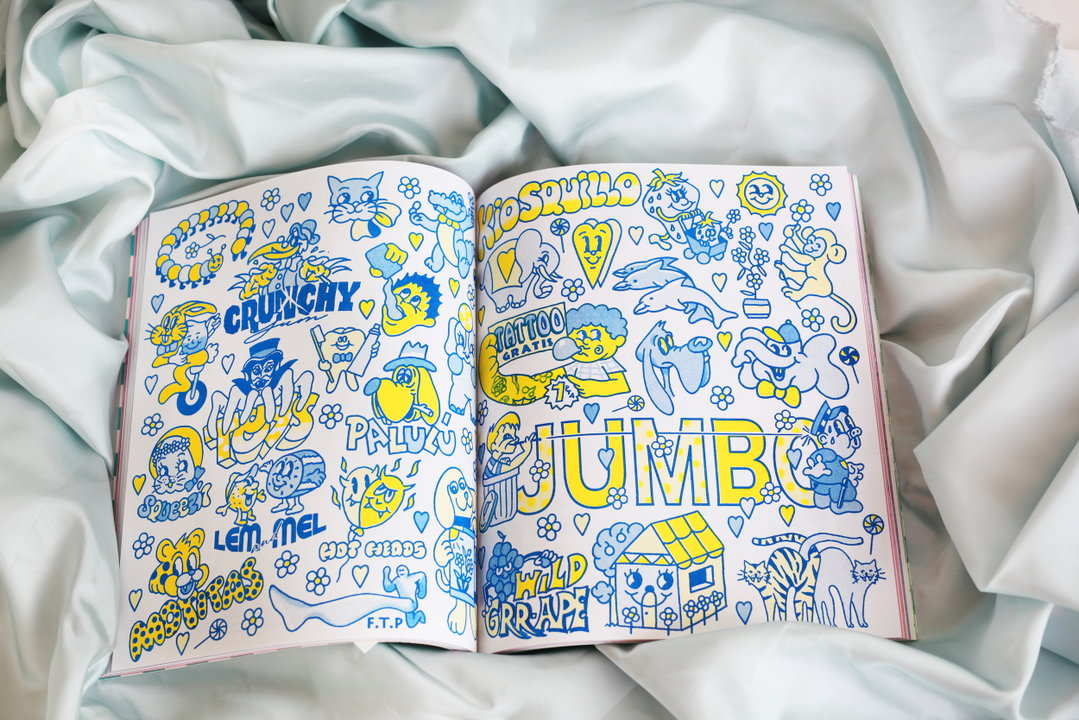 CRUNCHY
PALULU
SQUEEZY
LEM and MEL
HOT HEADS
MOTITAS
F.T.P
KIOSQUILLO
TATTOO
GRATIS
JUMBO
WILD
GRR-APE